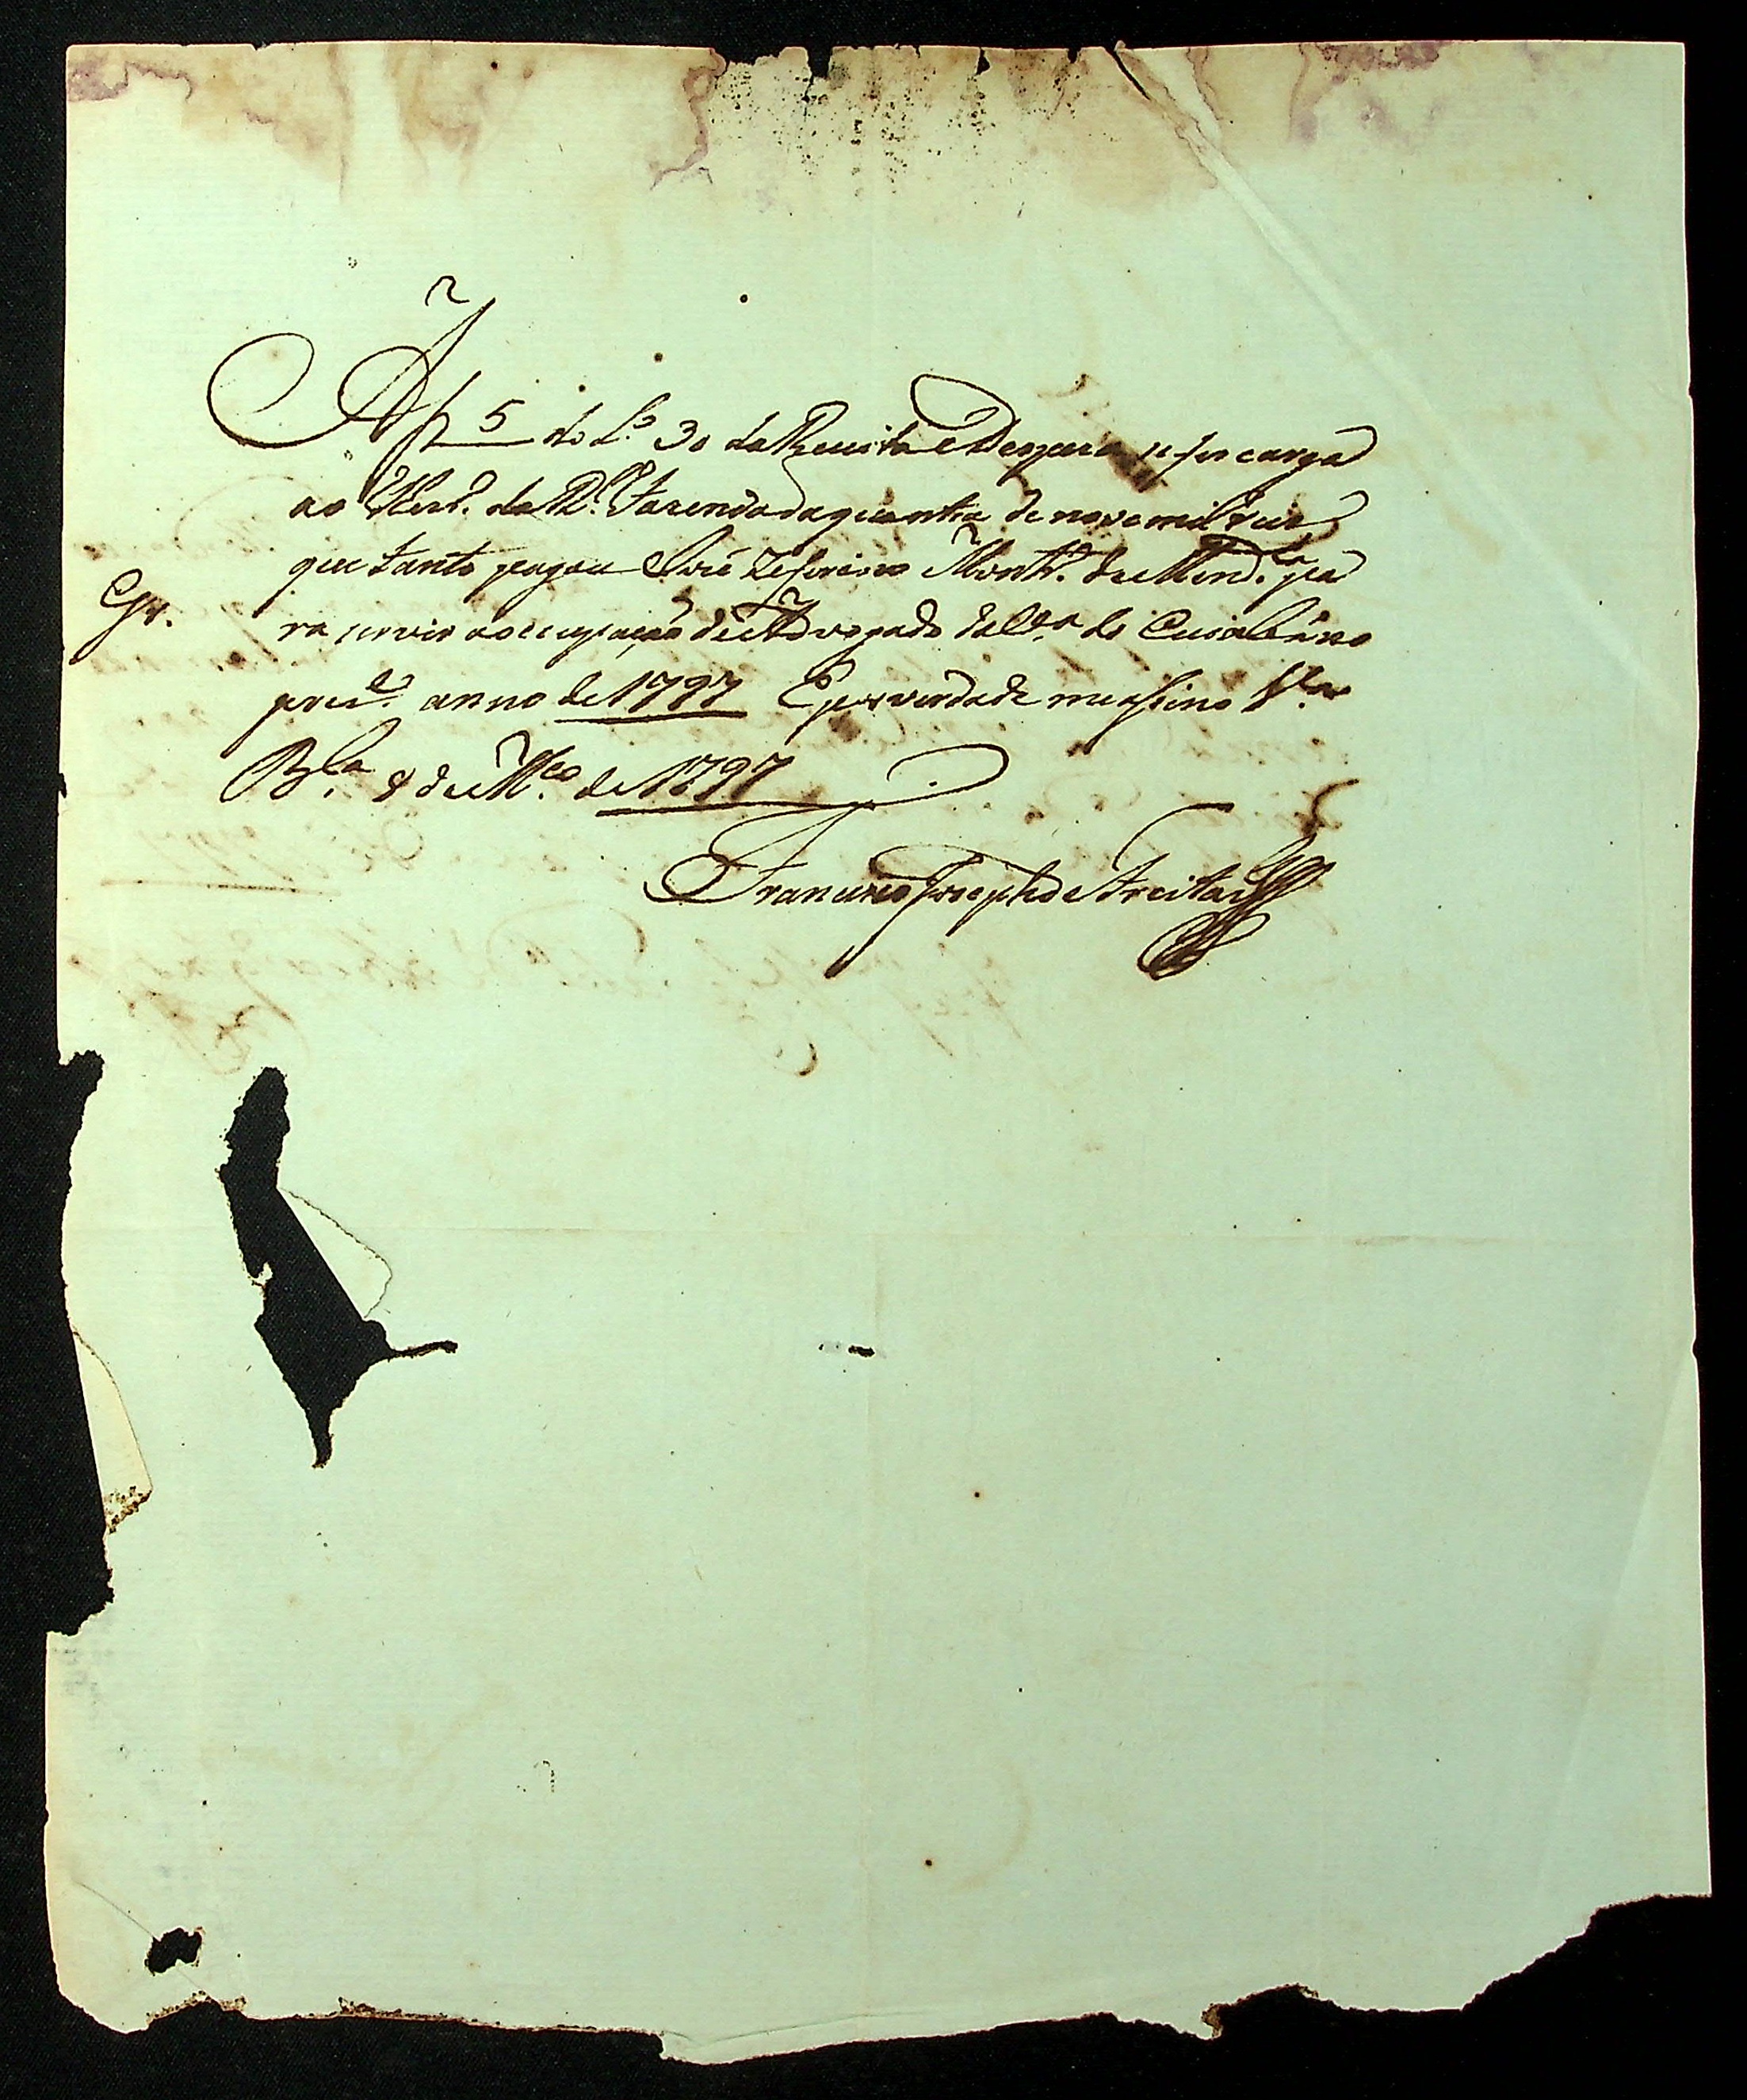 Af 5 do L.º 30 da Receita e Despeza se fes carga
ao Thez.º da R.l Fazenda da quantia de nove mil reis
que tanto pagou José Zeferino Montr.º de Mend.ça pa
Gr.
ra servir a occupação de Advogado da V.ª do Cuiabá no
pres.e anno de 1797 E por verdade me asino V.ª
B.la 8 de M.ço de 1797
Francisco Joseph de Freitas